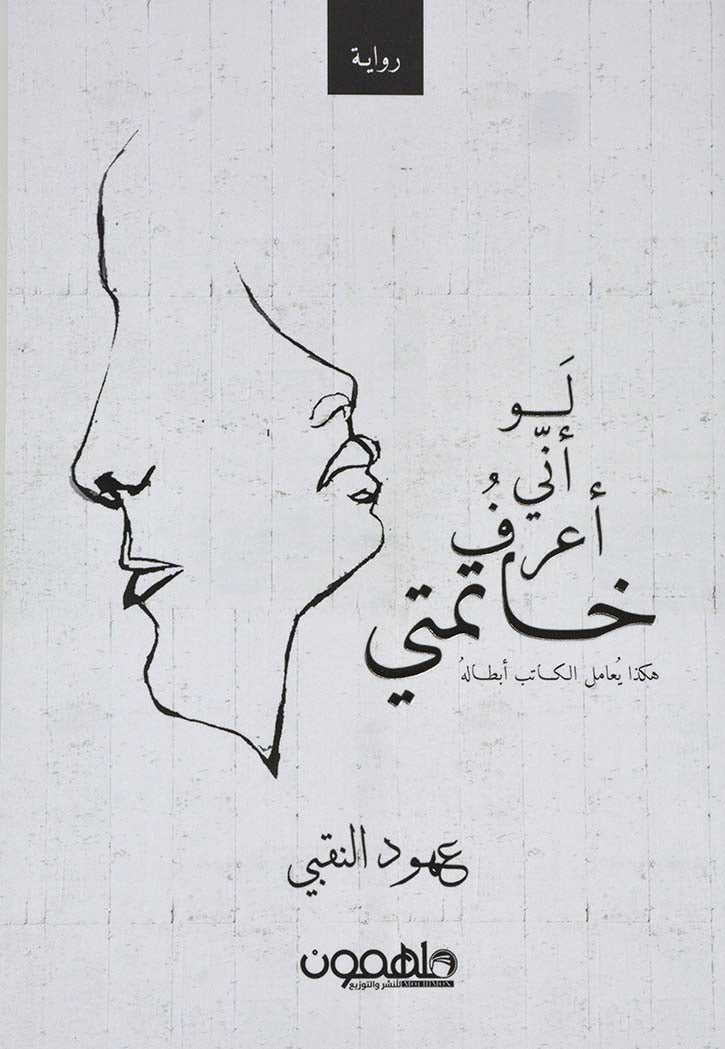 رواية
لَـو
أنّي
أعرفُ
خاتمتي
هكذا يُعامل الكاتب أبطالهُ
عهود النقبي
ملهمون
MOLHIMON للنشر والتوزيع